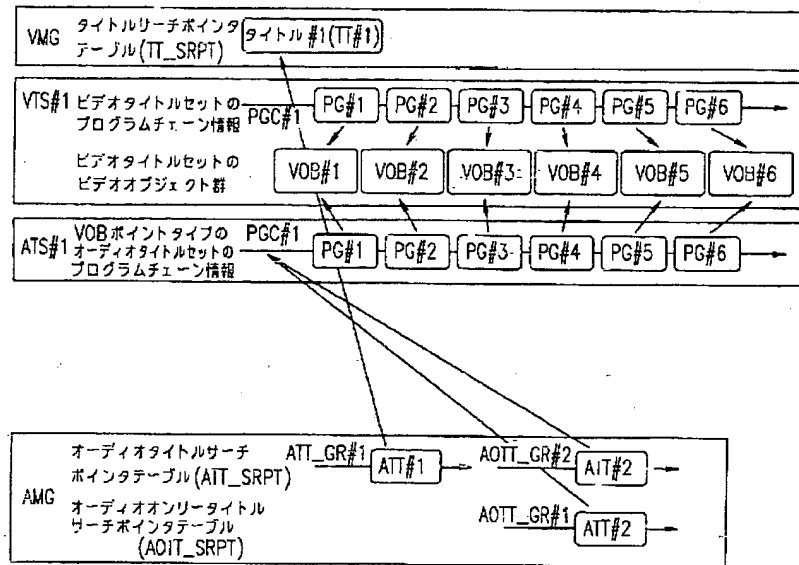 VMG
タイトルサーチポインタ
テーブル(TT_SRPT)
タイトル#1(TT#1)
VTS#1
ビデオタイトルセットの
プログラムチェーン情報
PGC#1
PG#1
PG#2
PG#3
PG#4
PG#5
PG#6
ビデオタイトルセットの
ビデオオブジェクト群
VOB#1
VOB#2
VOB#3
VOB#4
VOB#5
VOB#6
ATS#1
VOBポイントタイプの
オーディオタイトルセットの
プログラムチェーン情報
PGC#1
PG#1
PG#2
PG#3
PG#4
PG#5
PG#6
AMG
オーディオタイトルサーチ
ポインタテーブル(ATT_SRPT)
ATT_GR#1
ATT#1
AOTT_GR#2
ATT#2
オーディオオンリータイトル
サーチポインタテーブル
(AOTT_SRPT)
AOTT_GR#1
ATT#2